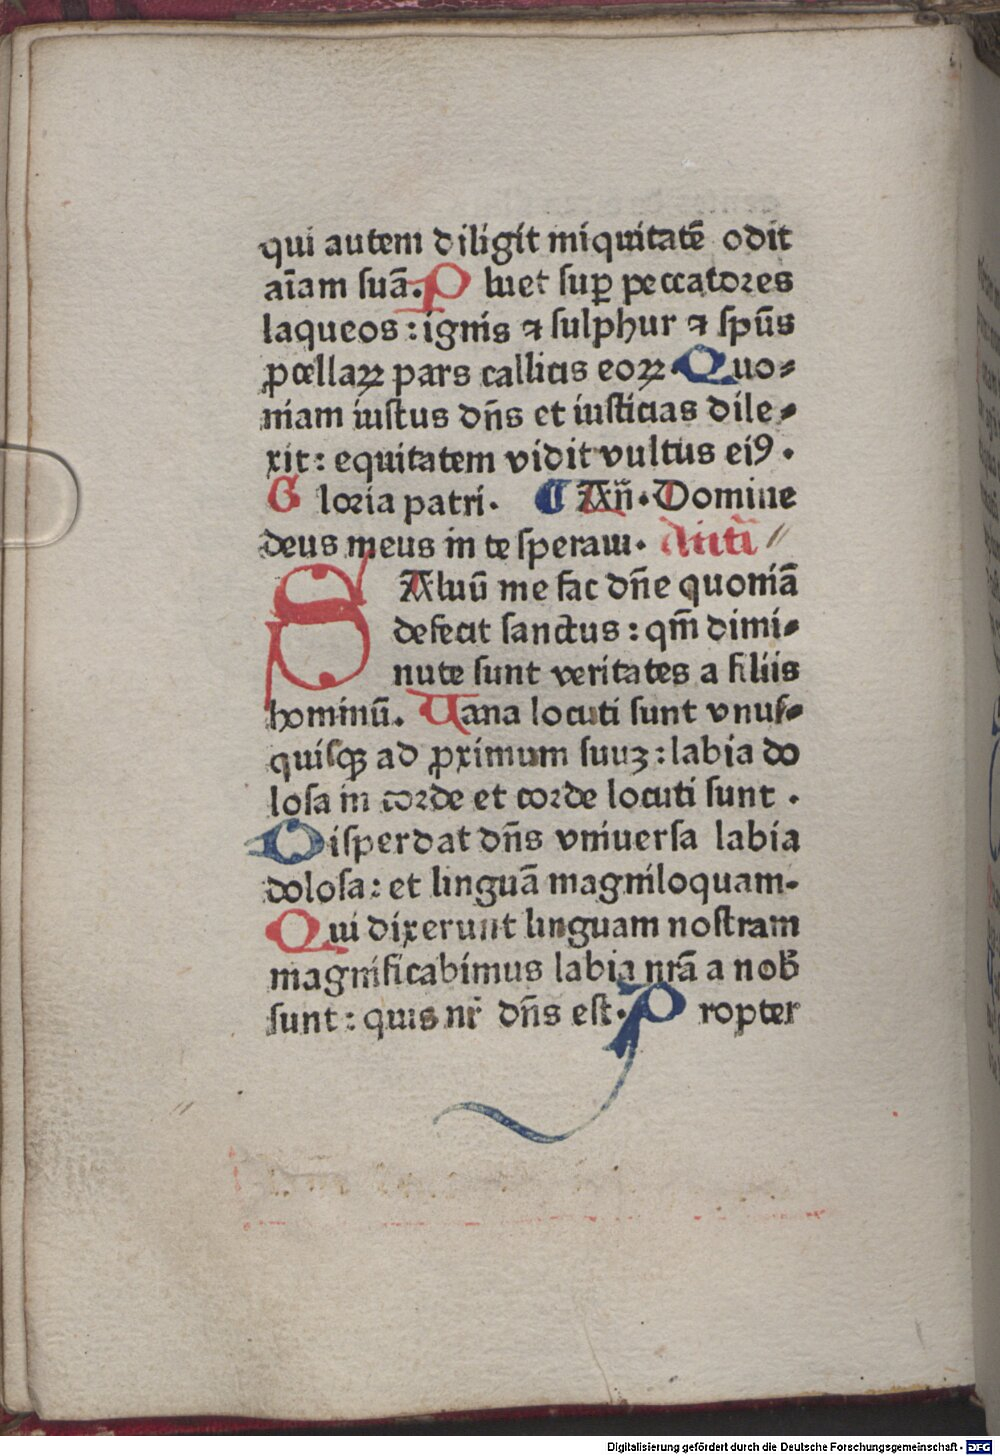 qui autem diligit iniquitatē odit
aīam suā. Pluet sup̲ peccatores
laqueos : ignis ⁊ sulphur ⁊ spūs
ꝓcellaꝝ pars callicis eoꝝ. Quo⸗
niam iustus dn̄s et iusticias dile⸗
xit : equitatem vidit vultus eiꝰ .
Gloria patri. ¶ Añ. Domine
deus meus in te speraui.
SAluū me fac dn̄e quoniā
defecit sanctus : qm̄ dimi⸗
nute sunt veritates a filiis
hominū. Vana locuti sunt vnus⸗
quisqꝫ ad ꝓximum suuꝫ : labia do
losa in corde et corde locuti sunt .
Disperdat dn̄s vniuersa labia
dolosa : et linguā magniloquam.
Qui dixerunt linguam nostram
magnificabimus labia nr̄a a nob̄
sunt : quis nr̄ dn̄s est. Propter
Digitalisierung gefördert durch die Deutsche Forschungsgemeinschaft - DFG